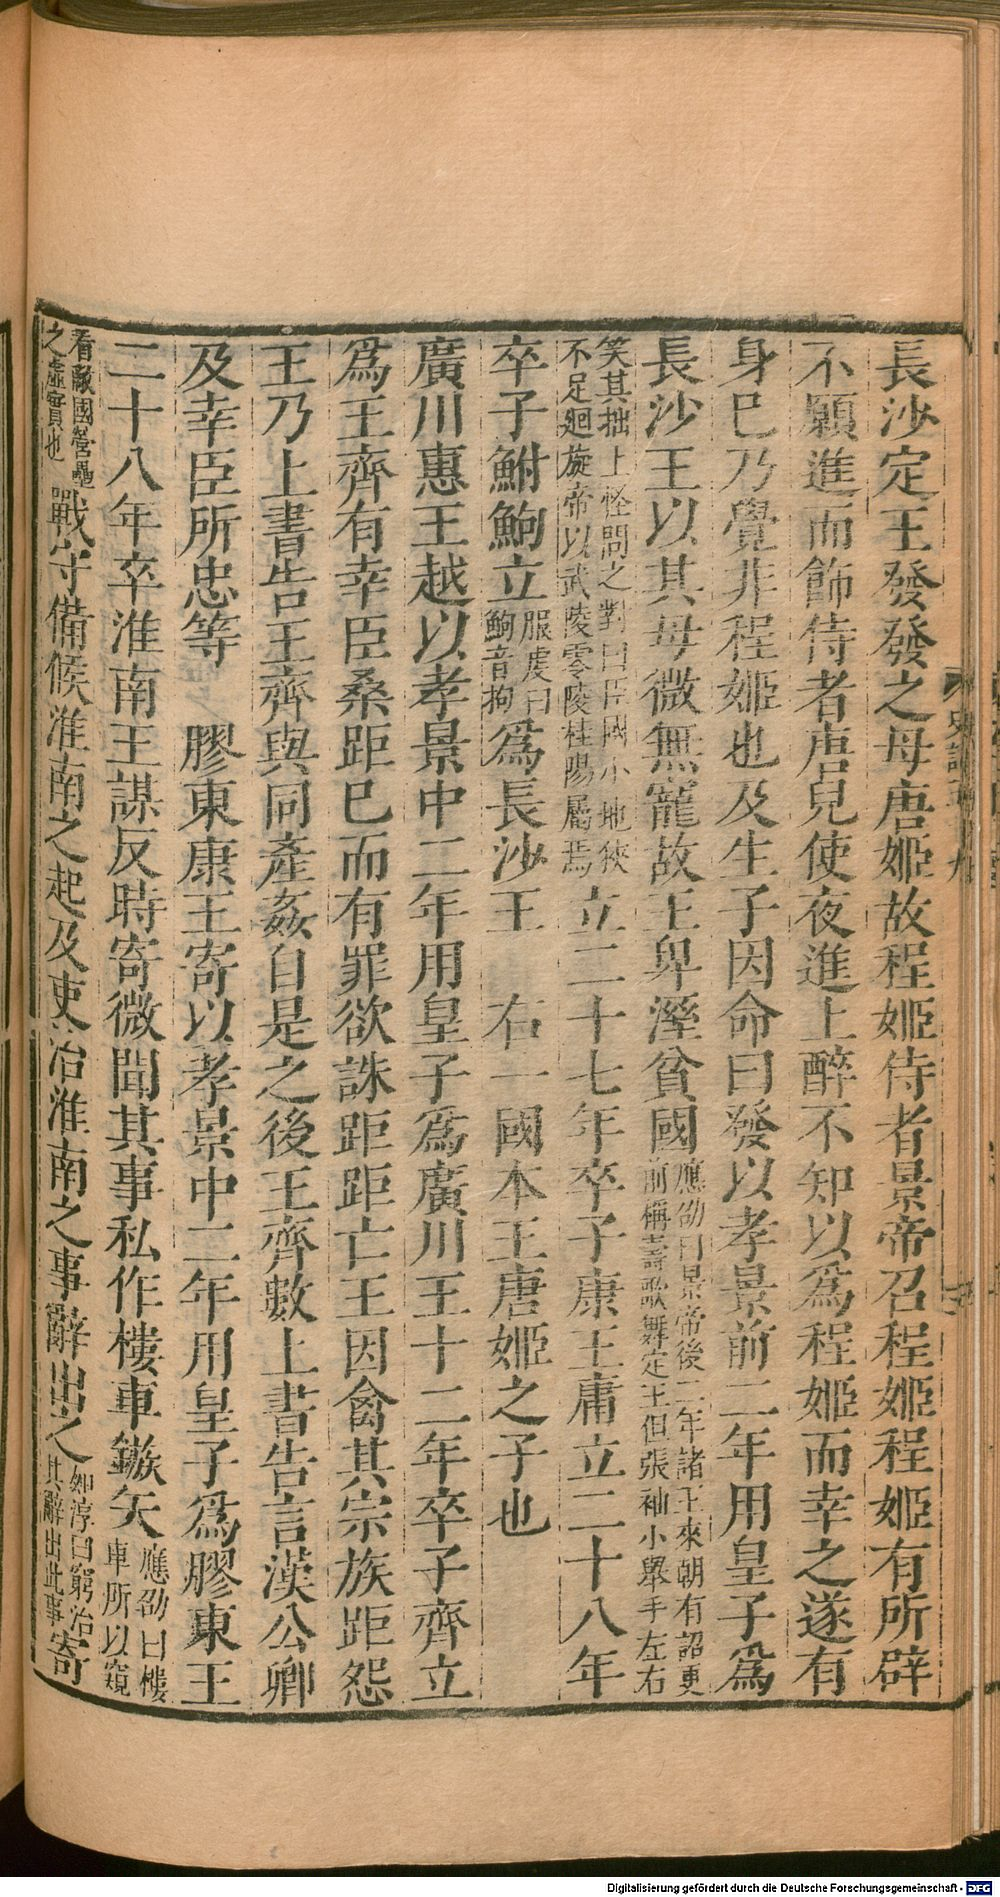 長沙定王發發之母唐姬故程姬侍者景帝召程姬程姬有所辟
不願進而飾侍者唐兒使夜進上醉不知以爲程姬而幸之遂有
身已乃覺非程姬也及生子因命曰發以孝景前二年用皇子爲
長沙王以其母微無寵故王卑溼貧國應劭曰景帝後二年諸王來朝有詔更前稱壽歌舞定王但張袖小舉手左右
笑其拙上怪問之對曰臣國小地狹不足迴旋帝以武陵零陵桂陽屬焉立二十七年卒子康王庸立二十八年
卒子鮒鮈立服虔曰鮈音拘爲長沙王 右一國本王唐姬之子也
廣川惠王越以孝景中二年用皇子爲廣川王十二年卒子齊立
爲王齊有幸臣桑距已而有罪欲誅距距亡王因禽其宗族距怨
王乃上書告王齊與同產姦自是之後王齊數上書告言漢公卿
及幸臣所忠等 膠東康王寄以孝景中二年用皇子爲膠東王
二十八年卒淮南王謀反時寄微聞其事私作樓車鏃矢應劭曰樓車所以窺
看敵國營壘之虛實也戰守備候淮南之起及吏治淮南之事辭出之如淳曰窮治其辭出此事寄
Digitalisierung gefördert durch die Deutsche Forschungsgemeinschaft - DFG